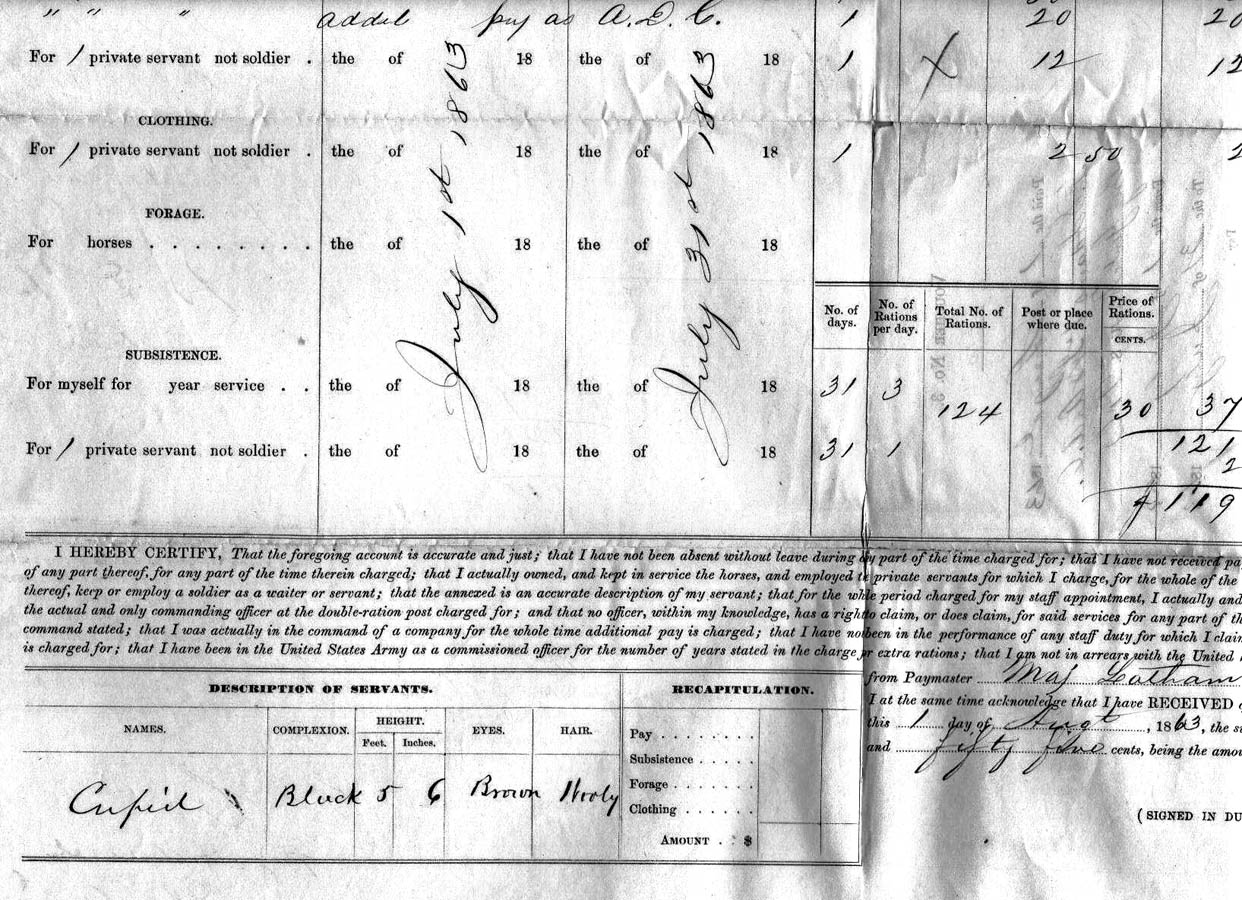 " " " addil pay as A. D. C. 1 20 20
For 1 private servant not soldier . the of 18 the of 18 1 X 12 12
CLOTHING.
For 1 private servant not soldier . the of 18 the of 18 1 2 50 2
FORAGE.
For horses . . . . . . . . the of 18 the of 18
July 1st 1863
July 31st 1863
No. of days. No. of Rations per day. Total No. of Rations. Post or place where due. Price of Rations.
CENTS.
SUBSISTENCE.
For myself for year service . . the of 18 the of 18 31 3
124 30 37
For 1 private servant not soldier . the of 18 the of 18 31 1 121
2
119
I HEREBY CERTIFY, That the foregoing account is accurate and just; that I have not been absent without leave during any part of the time charged for; that I have not received pa
of any part thereof, for any part of the time therein charged; that I actually owned, and kept in service the horses, and employed the private servants for which I charge, for the whole of the
thereof, keep or employ a soldier as a waiter or servant; that the annexed is an accurate description of my servant; that for the whole period charged for my staff appointment, I actually and
the actual and only commanding officer at the double-ration post charged for; and that no officer, within my knowledge, has a right to claim, or does claim, for said services for any part of th
command stated; that I was actually in the command of a company for the whole time additional pay is charged; that I have not been in the performance of any staff duty for which I claim
is charged for; that I have been in the United States Army as a commissioned officer for the number of years stated in the charge for extra rations; that I am not in arrears with the United
from Paymaster Maj Latham
I at the same time acknowledge that I have RECEIVED
this 1 day of Augt , 1863, the su
and fifty five cents, being the amou
(SIGNED IN DU
DESCRIPTION OF SERVANTS.
NAMES. COMPLEXION. HEIGHT. EYES. HAIR.
Feet. Inches.
Cupid Black 5 6 Brown Wooly
RECAPITULATION.
Pay . . . . . . .
Subsistence . . . . .
Forage . . . . . . .
Clothing . . . . . .
AMOUNT . . $